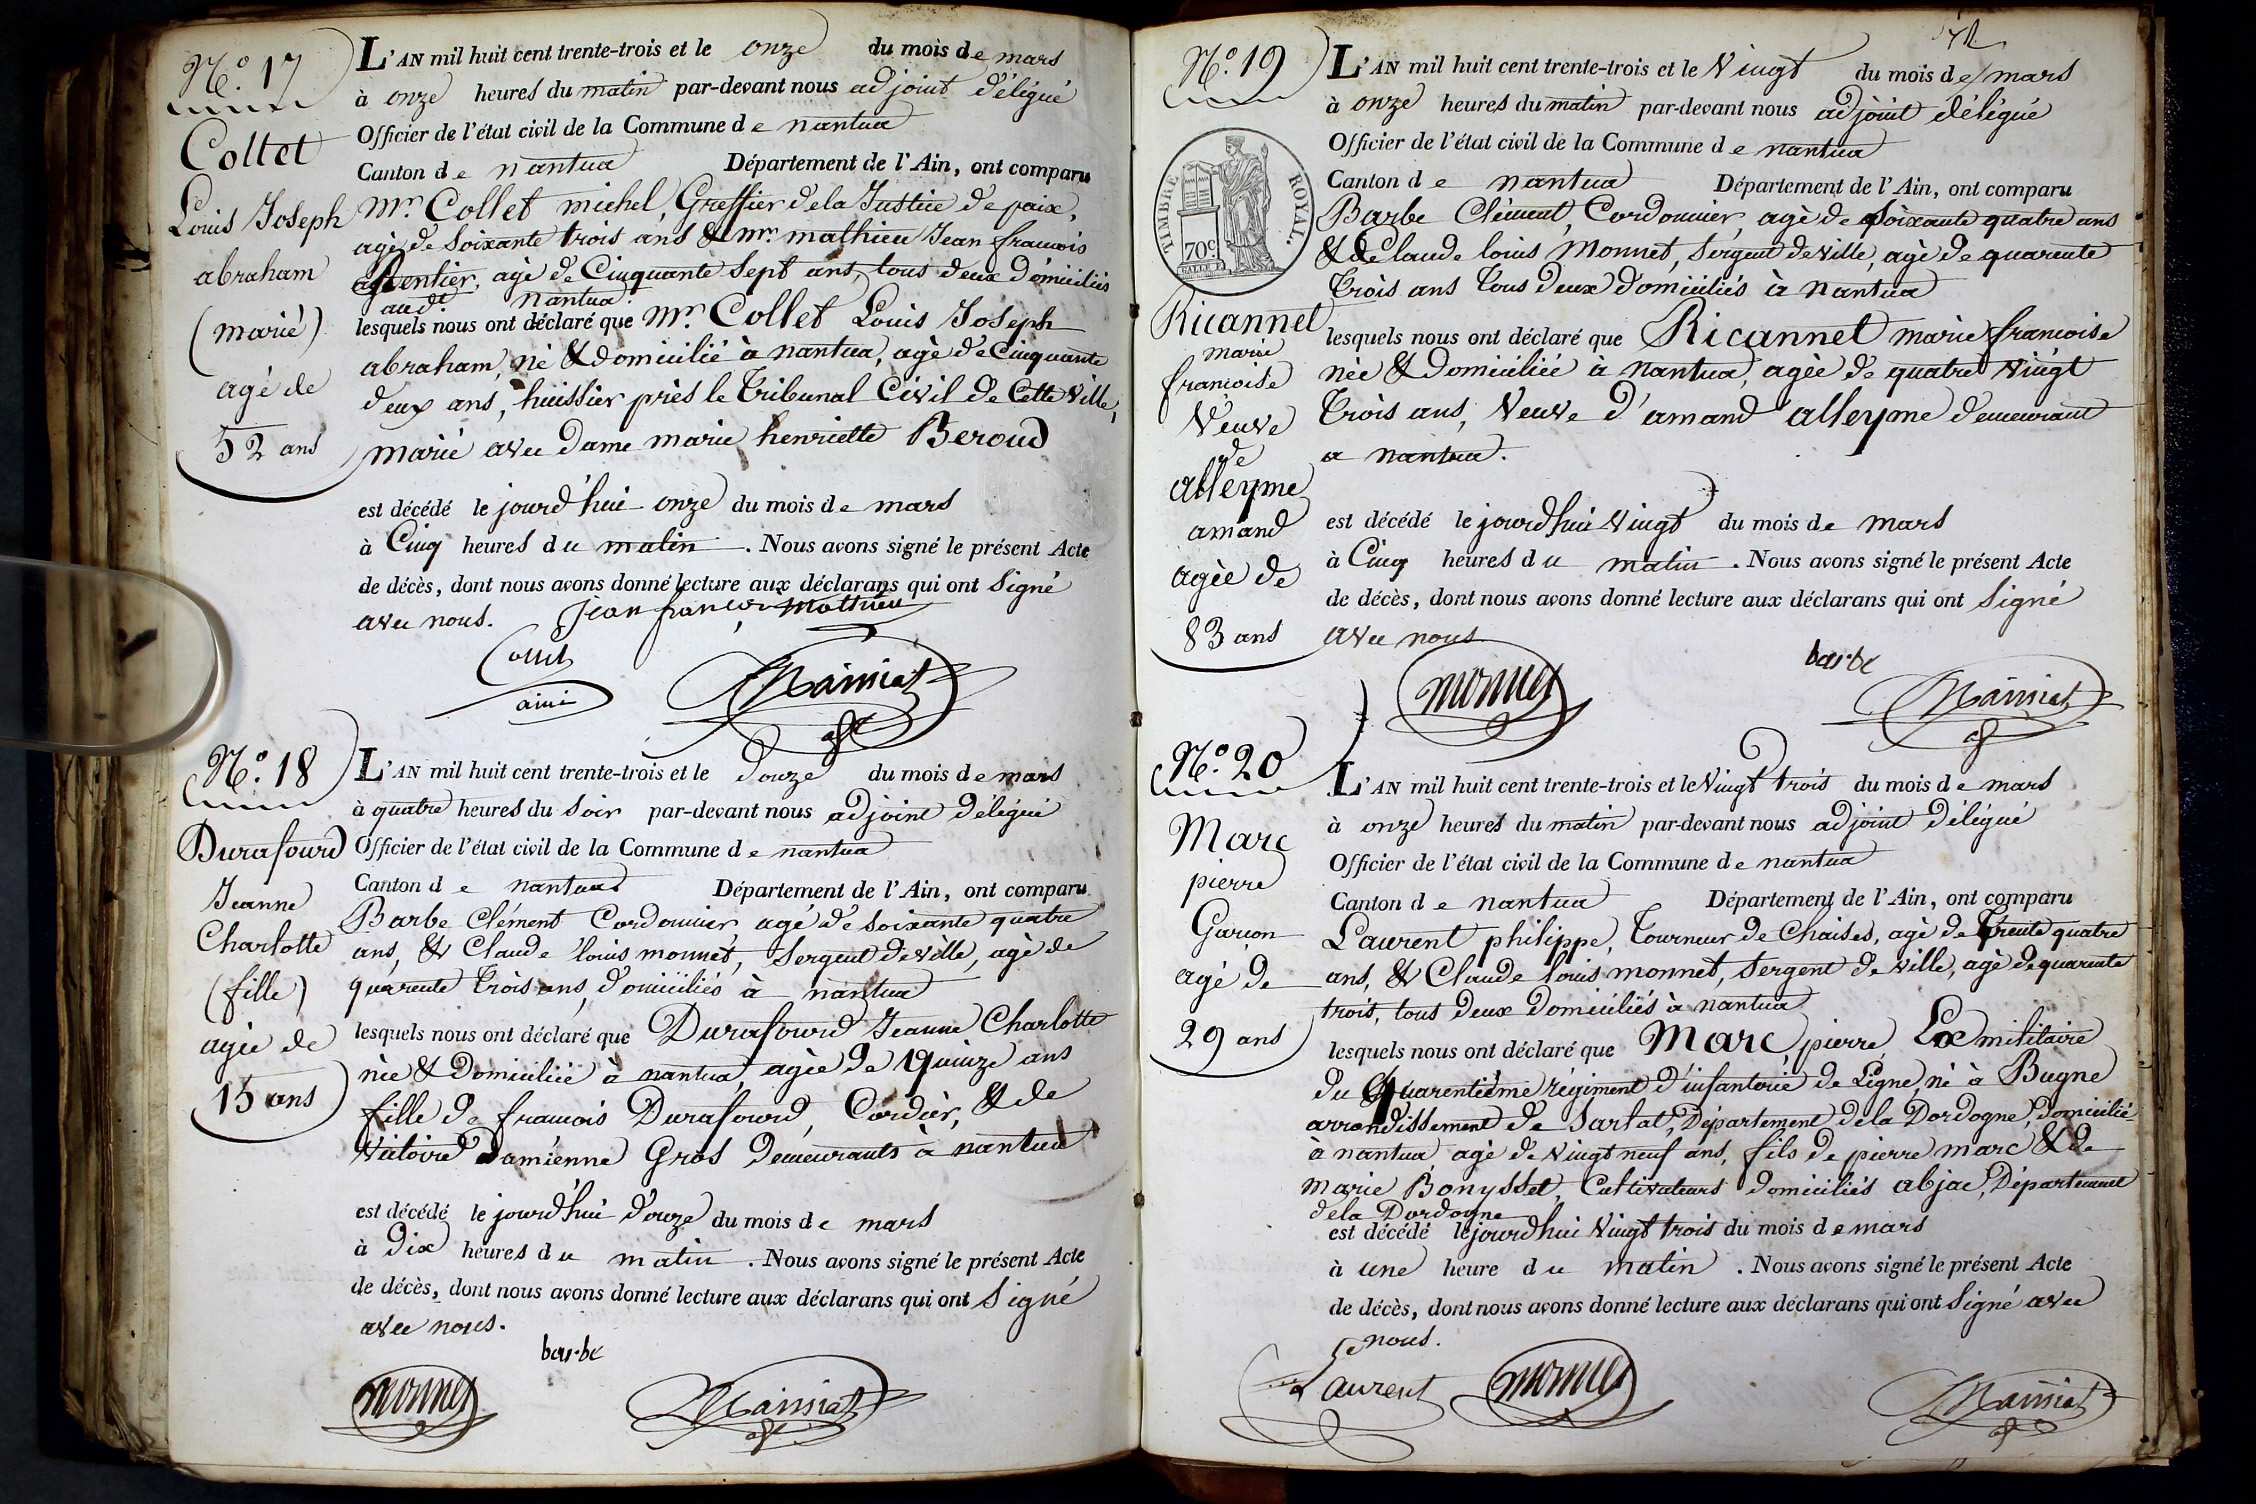 N.o 17
Collet
Louis Joseph
abraham
(marié)
agé de
52 ans
L'AN mil huit cent trente-trois et le onze du mois de mars
à onze heures du matin par-devant nous adjoint délégué
Officier de l'état civil de la Commune de nantua
Canton de nantua Département de l'Ain, ont comparu
Mr. Collet michel, Greffier de la Justice de paix,
agé de Soixante trois ans & mr. mathieu Jean francois
rentier, agé de Cinquante Sept ans, tous deux domiciliés
aud.t nantua.
lesquels nous ont déclaré que Mr. Collet Louis Joseph
abraham, né & domicilié à nantua, agé de Cinquante
deux ans, huissier près le Tribunal Civil de Cette Ville,
marié avec dame marie henriette Beroud
est décédé le jourd'hui onze du mois de mars
à Cinq heures du matin. Nous avons signé le présent Acte
de décès, dont nous avons donné lecture aux déclarans qui ont Signé
avec nous. Jean françois mathieu
Collet
ainé
N.o 18
Durafourd
Jeanne
Charlotte
(fille)
agée de
15 ans
L'AN mil huit cent trente-trois et le douze du mois de mars
à quatre heures du Soir par-devant nous adjoint délégué
Officier de l'état civil de la Commune de nantua
Canton de nantua Département de l'Ain, ont comparu
Barbe Clément Cordonnier, agé de soixante quatre
ans, & Claude louis monnet, Sergent de ville, agé de
quarente Trois ans, domiciliés à nantua
lesquels nous ont déclaré que Durafourd Jeanne Charlotte
née & domiciliée à nantua, agée de quinze ans
fille de francois Durafourd, Cordier, & de
Victoire damienne Gros demeurants à nantua
est décédé le jourd'hui douze du mois de mars
à Dix heures du matin. Nous avons signé le présent Acte
de décès, dont nous avons donné lecture aux déclarans qui ont Signé
avec nous.
barbe
monnet
N.o 19
Ricannet
marie
francoise
Veuve
de
alleyme
amand
agée de
83 ans
L'AN mil huit cent trente-trois et le Vingt du mois de mars
à onze heures du matin par-devant nous adjoint délégué
Officier de l'état civil de la Commune de nantua
Canton de nantua Département de l'Ain, ont comparu
TIMBRE ROYAL.
70c.
Barbe Clément, Cordonnier, agé de Soixante quatre ans
& Claude louis Monnet, Sergent de Ville, agé de quarente
Trois ans Tous deux domiciliés à nantua
lesquels nous ont déclaré que Ricannet marie francoise
née & domiciliée à nantua, agée de quatre Vingt
Trois ans, Veuve d'amand alleyme demeurant
a nantua.
est décédé le jourd'hui Vingt du mois de mars
à Cinq heures du matin. Nous avons signé le présent Acte
de décès, dont nous avons donné lecture aux déclarans qui ont Signé
avec nous
monnet
barbe
N.o 20
Marc
pierre
Garcon
agé de
29 ans
L'AN mil huit cent trente-trois et le Vingt trois du mois de mars
à onze heures du matin par-devant nous adjoint délégué
Officier de l'état civil de la Commune de nantua
Canton de nantua Département de l'Ain, ont comparu
Laurent philippe, Tourneur de Chaises, agé de Trente quatre
ans, & Claude louis monnet, Sergent de Ville, agé de quarente
trois, tous deux domiciliés à nantua
lesquels nous ont déclaré que Marc, pierre, Ex militaire
du Quarentième régiment d'infanterie de Ligne, né à Bugne
arrondissement de Sarlat, Département de la Dordogne, domicilié
à nantua, agé de Vingt neuf ans, fils de pierre marc & de
marie Bonysset, Cultivateurs domiciliés abjac, Département
de la Dordogne
est décédé le jourd'hui Vingt trois du mois de mars
à une heure du matin. Nous avons signé le présent Acte
de décès, dont nous avons donné lecture aux déclarans qui ont Signé avec
nous.
Laurent
monnet